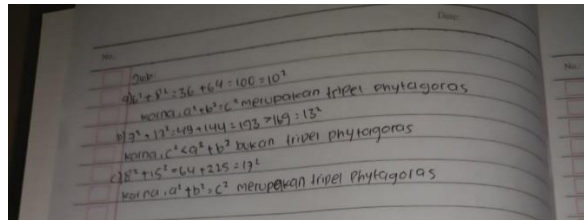 No.
Date:
Jwb:
a) 6² + 8² = 36 + 64 = 100 = 10²
karna, a² + b² = c² merupakan tripel phytagoras
b) 7² + 12² = 49 + 144 = 193 > 169 = 13²
karna, c² < a² + b² bukan tripel phytagoras
c) 8² + 15² = 64 + 225 = 17²
karna, a² + b² = c² merupakan tripel phytagoras
No.